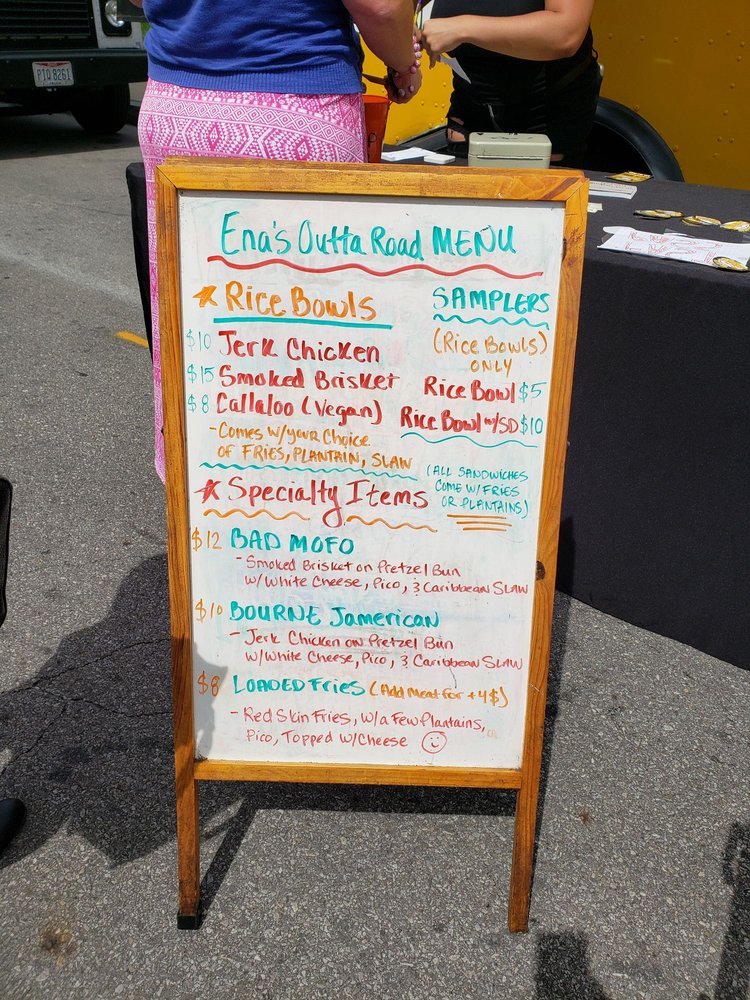 PIQ 8261
Ena's Outta Road MENU
★ Rice Bowls
$10 Jerk Chicken
$15 Smoked Brisket
$8 Callaloo (Vegan)
- Comes w/your Choice
OF FRIES, PLANTAIN, SLAW
SAMPLERS
(Rice Bowls)
ONLY
Rice Bowl $5
Rice Bowl w/SD $10
(ALL SANDWICHES
COME W/FRIES
OR PLANTAINS)
★ Specialty Items
$12 BAD MOFO
- Smoked Brisket on Pretzel Bun
w/White Cheese, Pico, & Caribbean SLAW
$10 BOURNE Jamerican
- Jerk Chicken on Pretzel Bun
w/White Cheese, Pico, & Caribbean SLAW
$8 LOADED Fries (Add Meat for +4$)
- Red Skin Fries, w/a Few Plantains,
Pico, Topped w/Cheese ☺